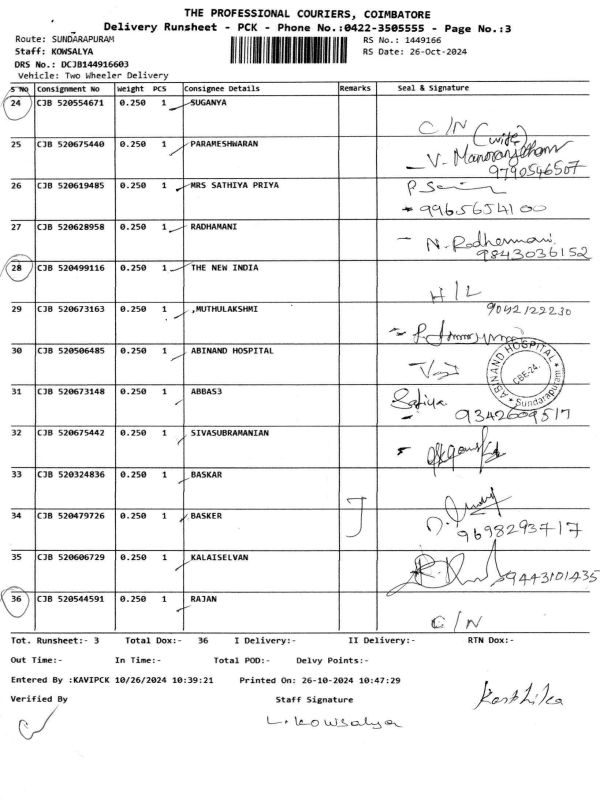 THE PROFESSIONAL COURIERS, COIMBATORE
Delivery Runsheet - PCK - Phone No.:0422-3505555 - Page No.:3
Route: SUNDARAPURAM
RS No.: 1449166
Staff: KOWSALYA
RS Date: 26-Oct-2024
DRS No.: DCJB144916603
Vehicle: Two Wheeler Delivery
S No Consignment No Weight PCS Consignee Details Remarks Seal & Signature
24 CJB 520554671 0.250 1 SUGANYA
C/N
25 CJB 520675440 0.250 1 PARAMESHWARAN
(wife)
V. Manoranjitham
9790546507
26 CJB 520619485 0.250 1 MRS SATHIYA PRIYA
9965654100
27 CJB 520628958 0.250 1 RADHAMANI
N. Radhamani
9843036152
28 CJB 520499116 0.250 1 THE NEW INDIA
H/L
29 CJB 520673163 0.250 1 ,MUTHULAKSHMI
9042122230
30 CJB 520506485 0.250 1 ABINAND HOSPITAL
ABINAND HOSPITAL
CBE-24.
Sundarapuram
31 CJB 520673148 0.250 1 ABBAS3
Safiya
9342609517
32 CJB 520675442 0.250 1 SIVASUBRAMANIAN
33 CJB 520324836 0.250 1 BASKAR
34 CJB 520479726 0.250 1 BASKER
9698293717
35 CJB 520606729 0.250 1 KALAISELVAN
9443101435
36 CJB 520544591 0.250 1 RAJAN
C/N
Tot. Runsheet:- 3 Total Dox:- 36 I Delivery:- II Delivery:- RTN Dox:-
Out Time:- In Time:- Total POD:- Delvy Points:-
Entered By :KAVIPCK 10/26/2024 10:39:21 Printed On: 26-10-2024 10:47:29
Verified By Staff Signature
Karthika
L. Kowsalya